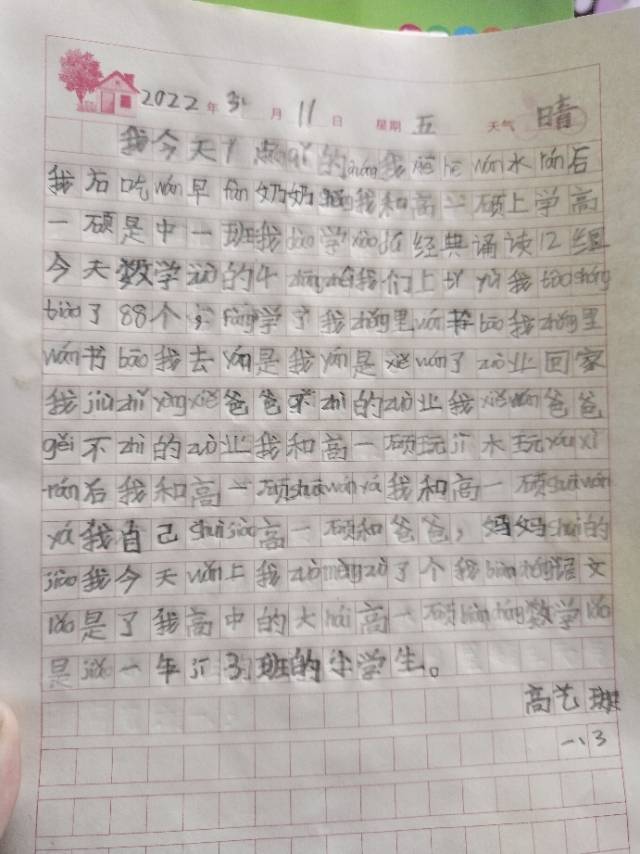 2022年 3 月 11 日 星期 五 天气 晴
我今天7点 的 我 hē wán水rán后
我后吃wán早fàn奶奶 我和高一硕上学高
一硕是中一班我dào学xiào 经典诵读12
今天数学zuò的4 我们上tǐ yù我tiàoshéng
tiào了88个 fàng学了我zhěng里wán书bāo我zhěng里
wán书bāo我去yán是我yán是xiě wán了zuò业回家
我jiù zhǐ yòng xiě爸爸 zhì的zuò业我xiě wán爸爸
gěi不zhì的zuò业我和高一硕玩jī木玩yóu xì
rán后我和高一硕shuā wán yá我和高一硕shuā wán
yá我自己shuì jiào高一硕和爸爸，妈妈shuì的
jiào我今天wǎn上我zuò mèng zuò了个我biàn chéng语文
lǎo是了我高中的大hái高一硕biàn chéng数学lǎo
是jiāo一年jí 3班的小学生。
高艺
一、3